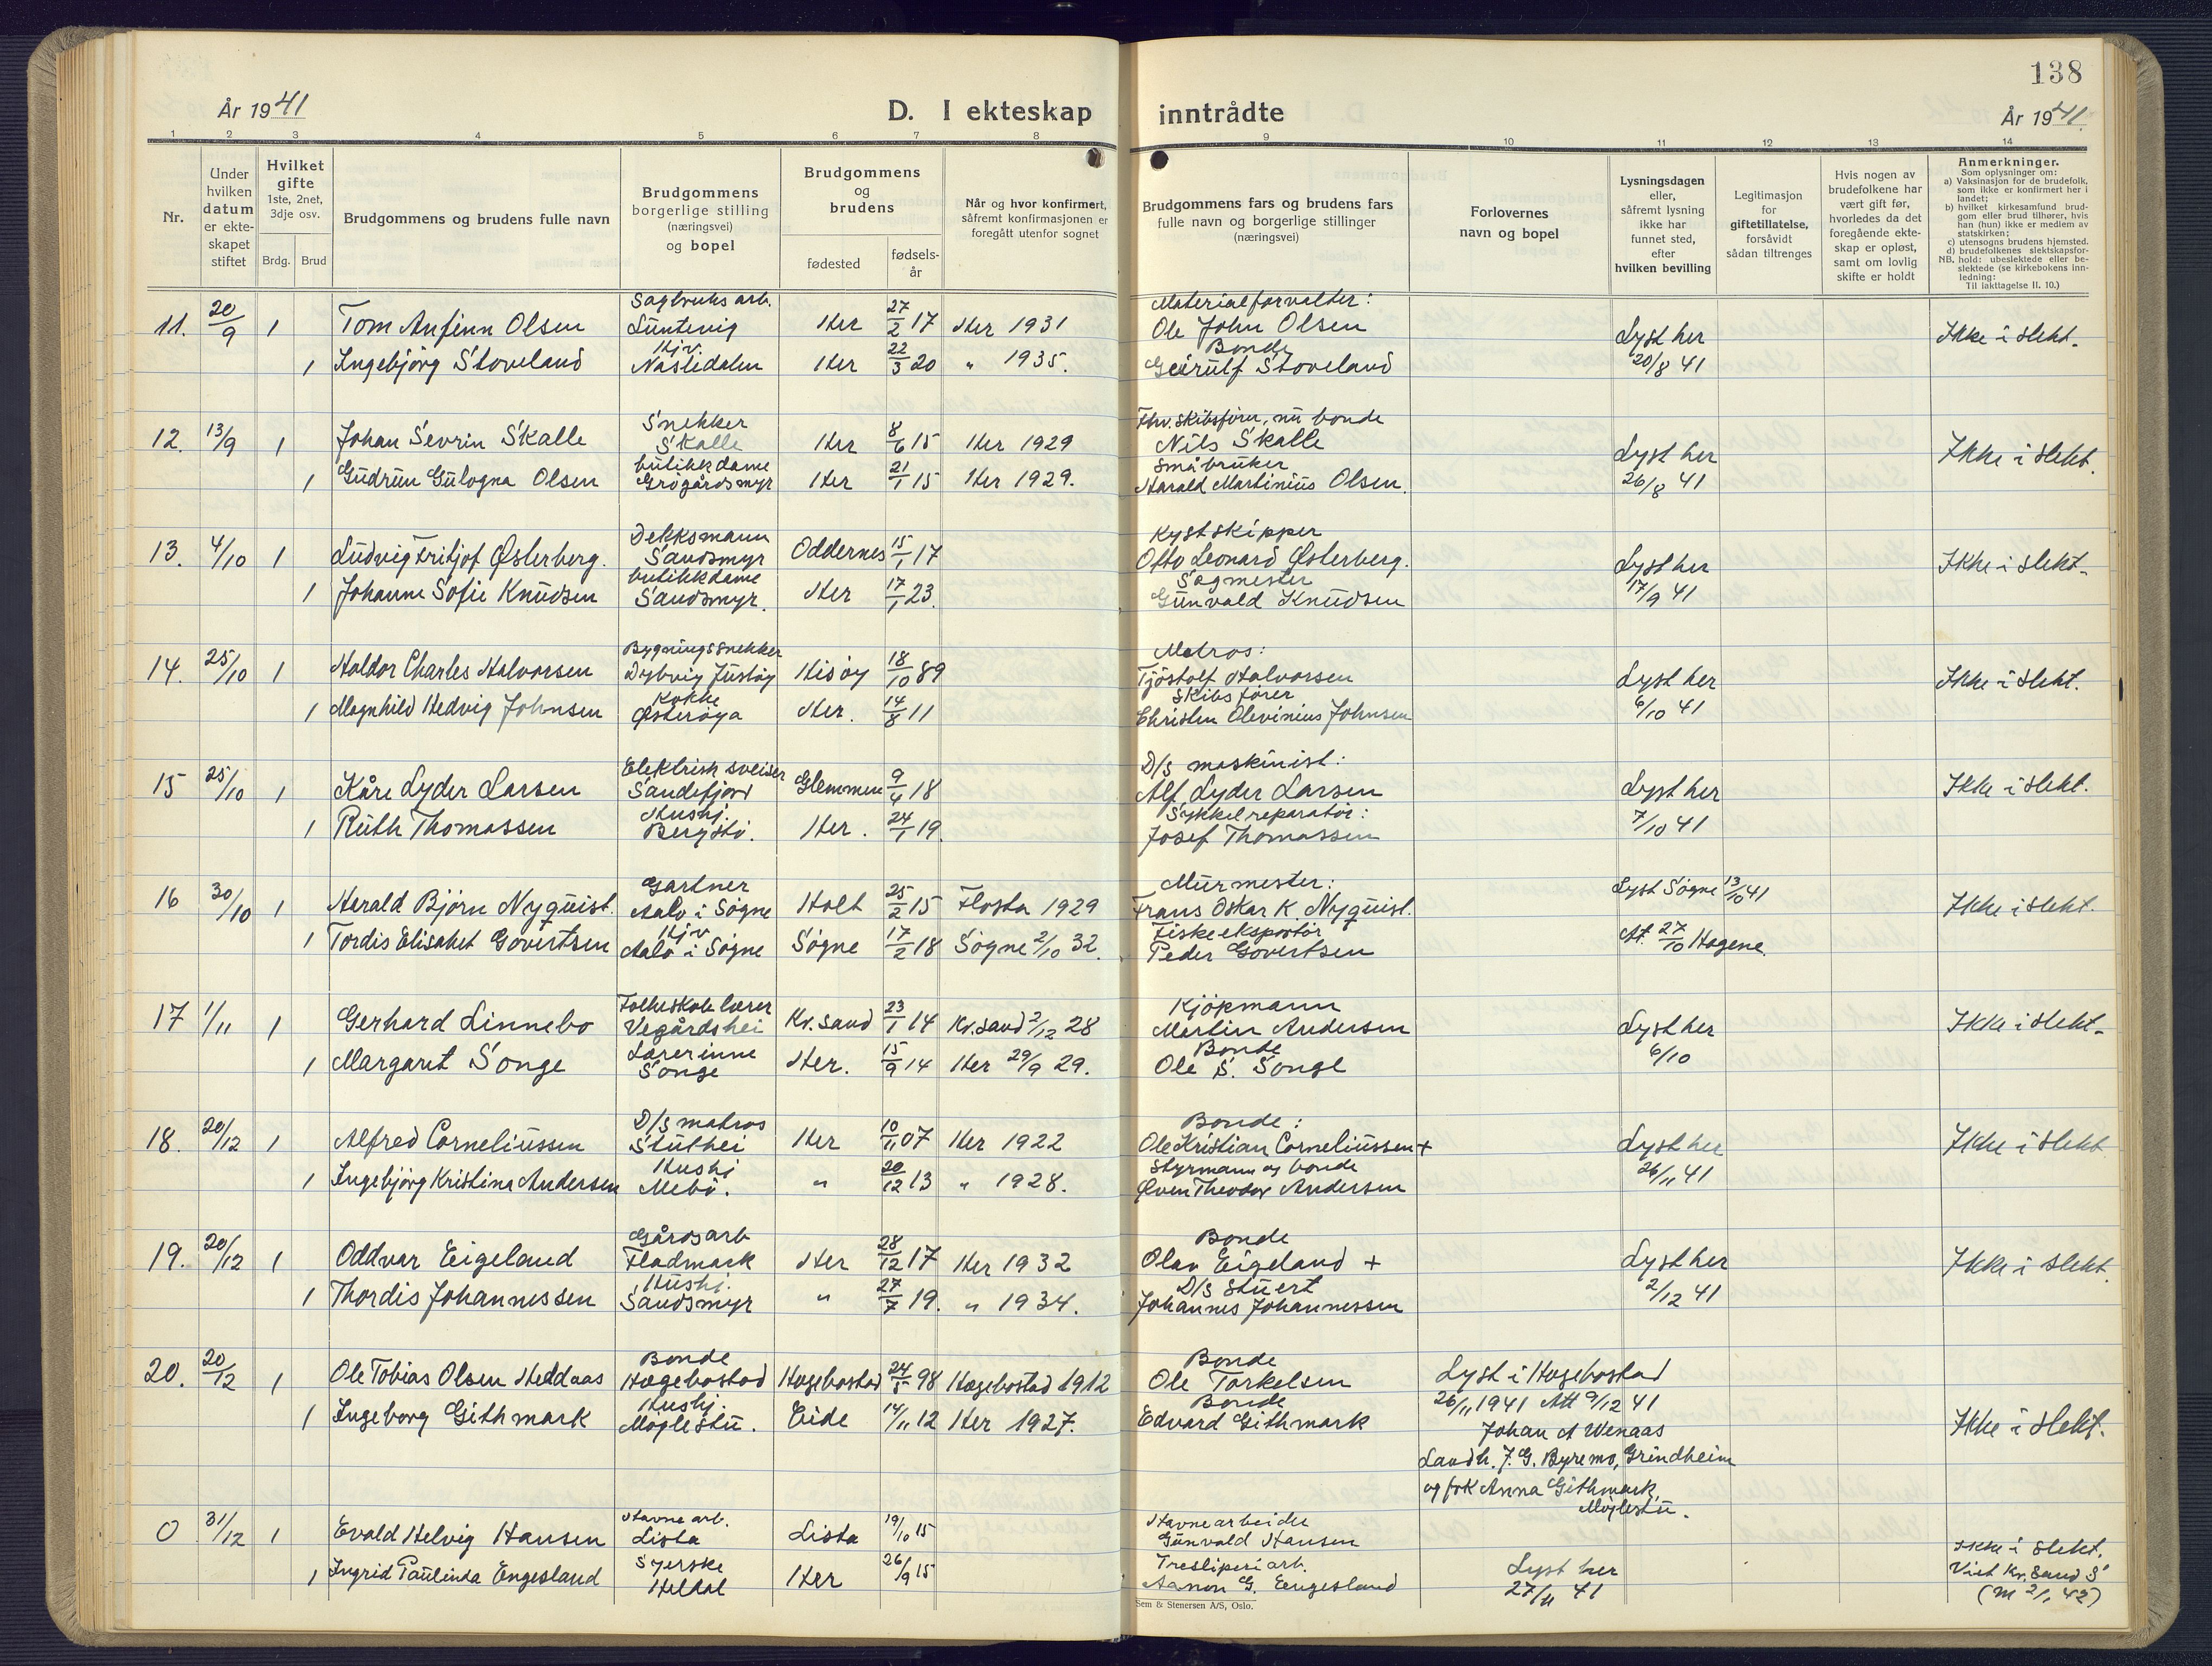 138
År 1941
D. I ekteskap inntrådte
År 1941.
1 2 3 4 5 6 7 8 9 10 11 12 13 14
Nr.
Under hvilken datum er ekteskapet stiftet
Hvilket gifte 1ste, 2net, 3dje osv.
Brdg. Brud
Brudgommens og brudens fulle navn
Brudgommens borgerlige stilling (næringsvei) og bopel
Brudgommens og brudens
fødested
fødselsår
Når og hvor konfirmert, såfremt konfirmasjonen er foregått utenfor sognet
Brudgommens fars og brudens fars fulle navn og borgerlige stillinger (næringsvei)
Forlovernes navn og bopel
Lysningsdagen eller, såfremt lysning ikke har funnet sted, efter hvilken bevilling
Legitimasjon for giftetillatelse, forsåvidt sådan tiltrenges
Hvis nogen av brudefolkene har vært gift før, hvorledes da det foregående ekteskap er opløst, samt om lovlig skifte er holdt
Anmerkninger.
Som oplysninger om:
a) Vaksinasjon for de brudefolk, som ikke er konfirmert her i landet;
b) hvilket kirkesamfund brudgom eller brud tilhører, hvis han (hun) ikke er medlem av statskirken;
c) utensogns brudens hjemsted.
d) brudefolkenes slektskapsforhold: ubeslektede eller beslektede (se kirkebokens innledning:
NB.
Til iakttagelse II. 10.)
11. 20/9 1 Tom Anfinn Olsen Sagbruks arb. Luntevig Her 27/2 17 Her 1931 Materialforvalter: Ole John Olsen Lyst her 20/8 41 Ikke i slekt.
1 Ingebjörg Stoveland Hjv. Naslidalen Her 22/3 20 " 1935. Bonde Geirulf Stoveland
12. 13/9 1 Johan Sevrin Skalle Snekker Skalle Her 8/6 15 Her 1929 Fhv. skibsförer, nu bonde Nils Skalle Lyst her 26/8 41 Ikke i slekt.
1 Gudrun Gulogna Olsen butikkdame Grögårdsmyr Her 21/1 15 Her 1929. småbruker Harald Martinius Olsen.
13. 4/10 1 Ludvig Fritjof Østerberg. Dekksmann Sandsmyr Oddernes 15/1 17 Kystskipper Otto Leonard Østerberg. Lyst her 17/9 41 Ikke i slekt.
1 Johanne Sofie Knudsen butikkdame Sandsmyr. Her 17/1 23. Sagmester Gunvald Knudsen
14. 25/10 1 Haldor Charles Halvorsen Bygningssnekker Dybvig Justöy Hisöy 18/10 89 Matros: Tjöstolf Halvorsen Lyst her 6/10 41 Ikke i slekt.
1 Magnhild Hedvig Johnsen Kokke Østeröya Her. 14/8 11 Skibsförer Christen Olevinius Johnsen
15 25/10 1 Kåre Lyder Larsen Elektrisk sveiser Sandefjord Glemmen 9/4 18 D/S maskinist: Alf Lyder Larsen Lyst her 7/10 41 Ikke i slekt.
1 Ruth Thomassen Hushj. Bergstö. Her. 24/1 19. Sykkelreparatör: Josef Thomassen
16 30/10 1 Harald Björn Nyquist. Gartner Aalo i Sögne Holt 25/2 15 Flosta 1929 Murmester: Frans Oskar K. Nyquist. Lyst Sögne 13/10 41 Ikke i slekt.
1 Tordis Elisabet Govertsen Hjv Aalo i Sögne Sögne 17/2 18 Sögne 2/10 32. Fiskeeksportör Peder Govertsen At. 27/10 Hagene.
17 1/11 1 Gerhard Linnebo Folkeskolelærer Vegårdshei Kr.sand 23/1 14 Kr.sand 2/12 28 Kjöpmann Martin Andersen Lyst her 6/10 Ikke i slekt.
1 Margaret Songe Lærerinne Songe Her. 15/9 14 Her 29/9 29. Bonde Ole S. Songe
18. 20/12 1 Alfred Corneliussen D/S matros Stuthei Her 10/11 07 Her 1922 Bonde: Ole Kristian Corneliussen + Lyst her 26/11 41 Ikke i slekt.
1 Ingebjörg Kristina Andersen Hushj Mebö. " 20/12 13 " 1928. Styrmann og bonde Even Theodor Andersen
19. 20/12 1 Oddvar Eigeland Gårdsarb Fladmark Her 28/12 17 Her 1932 Bonde Olav Eigeland + Lyst her 2/12 41 Ikke i slekt.
1 Thordis Johannessen Hushj. Sandsmyr " 27/7 19. " 1934. D/S Stuert Johannes Johannessen
20. 20/12 1 Ole Tobias Olsen Heddaas Bonde Hægebostad Hægebostad 24/5 98 Hægebostad 1912 Bonde Ole Torkelsen Lyst i Hægebostad 26/11 1941 Att 9/12 41
1 Ingeborg Githmark Hushj. Moglestu. Eide 14/11 12 Her 1927. Bonde Edvard Githmark Johan A Wenaas Ikke i slekt.
Landh. J. G. Byremo, Grindheim
og frk Anna Githmark, Möglestu.
0 31/12 1 Evald Helvig Hansen Havnearb. Lista Lista 19/10 15 Havnearbeider Gunvald Hansen Ikke i slekt.
1 Ingrid Paulinda Engesland Syerske Heldal Her 26/9 15 Tresliperiarb. Aanon G. Engesland Lyst her 27/11 41 Viet Kr.sand S (M 2/1 42)
Sem & Stenersen A/S, Oslo.